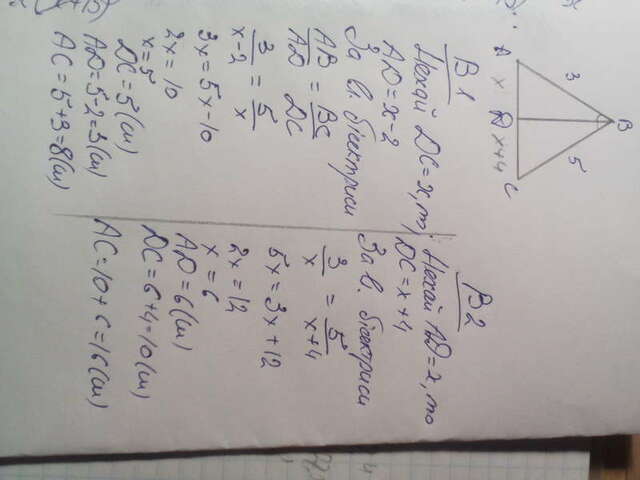 A
3
B
x
D
x+4
5
C
B1
Нехай DC=x, то
AD=x-2
За в. бісектриси
AB/AD = BC/DC
3/x-2 = 5/x
3x=5x-10
2x=10
x=5
DC=5(см)
AD=5-2=3(см)
AC=5+3=8(см)
B2
Нехай AD=x, то
DC=x+4
За в. бісектриси
3/x = 5/x+4
5x=3x+12
2x=12
x=6
AD=6(см)
DC=6+4=10(см)
AC=10+6=16(см)